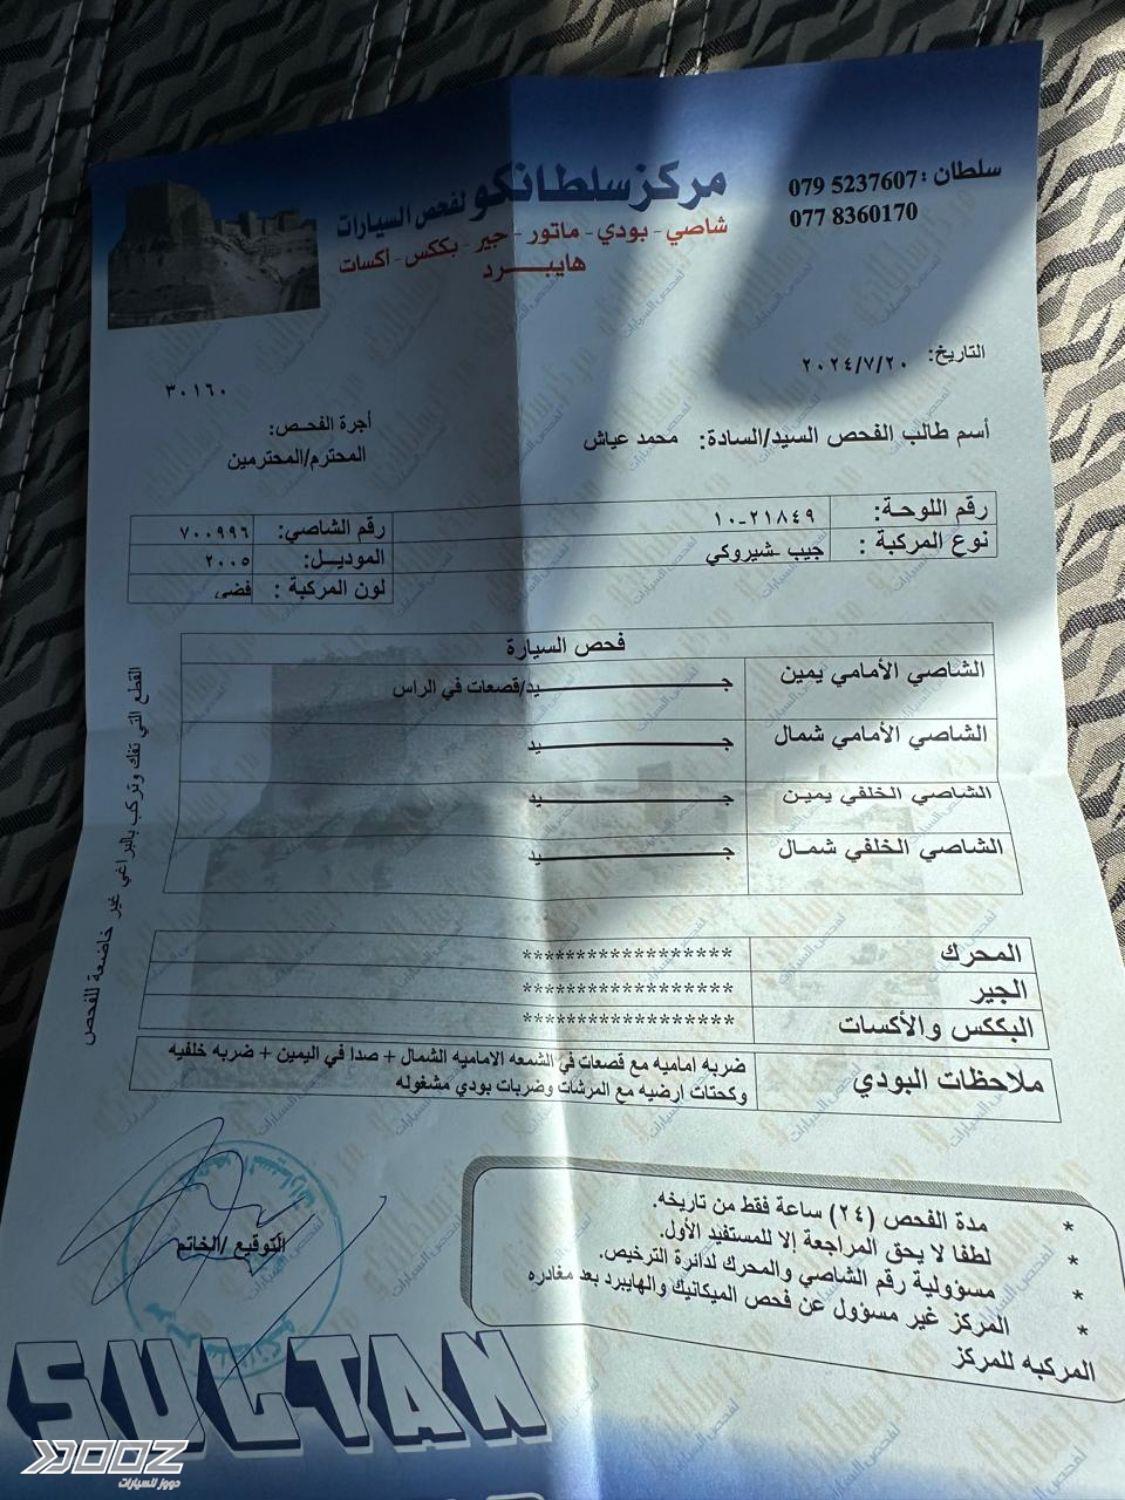 مركز سلطانكو لفحص السيارات
شاصي - بودي - ماتور - جير - بككس - أكسات
هايبــــرد
سلطان : 079 5237607
077 8360170
التاريخ: ٢٠٢٤/٧/٢٠
٣٠١٦٠
أجرة الفحـص:
أسم طالب الفحص السيد/السادة: محمد عياش
المحترم/المحترمين
رقم اللوحة: ٢١٨٤٩-١٠
رقم الشاصي: ٧٠٠٩٩٦
نوع المركبة : جيب -شيروكي
الموديـل: ٢٠٠٥
لون المركبة : فضى
فحص السيارة
الشاصي الأمامي يمين جـــــــــيد/قصعات في الراس
الشاصي الأمامي شمال جـــــــــيد
الشاصي الخلفي يمين جـــــــــيد
الشاصي الخلفي شمال جـــــــــيد
القطع التي تفك وتركب بالبراغي غير خاضعة للفحص
المحرك ******************
الجير ******************
البككس والأكسات ******************
ملاحظات البودي ضربه اماميه مع قصعات في الشمعه الاماميه الشمال + صدا في اليمين + ضربه خلفيه
وكحتات ارضيه مع المرشات وضربات بودي مشغوله
* مدة الفحص (٢٤) ساعة فقط من تاريخه.
* لطفا لا يحق المراجعة إلا للمستفيد الأول.
* مسؤولية رقم الشاصي والمحرك لدائرة الترخيص.
* المركز غير مسؤول عن فحص الميكانيك والهايبرد بعد مغادره
المركبه للمركز
التوقيع /الخاتم
SULTAN
DOOZ
دووز للسيارات